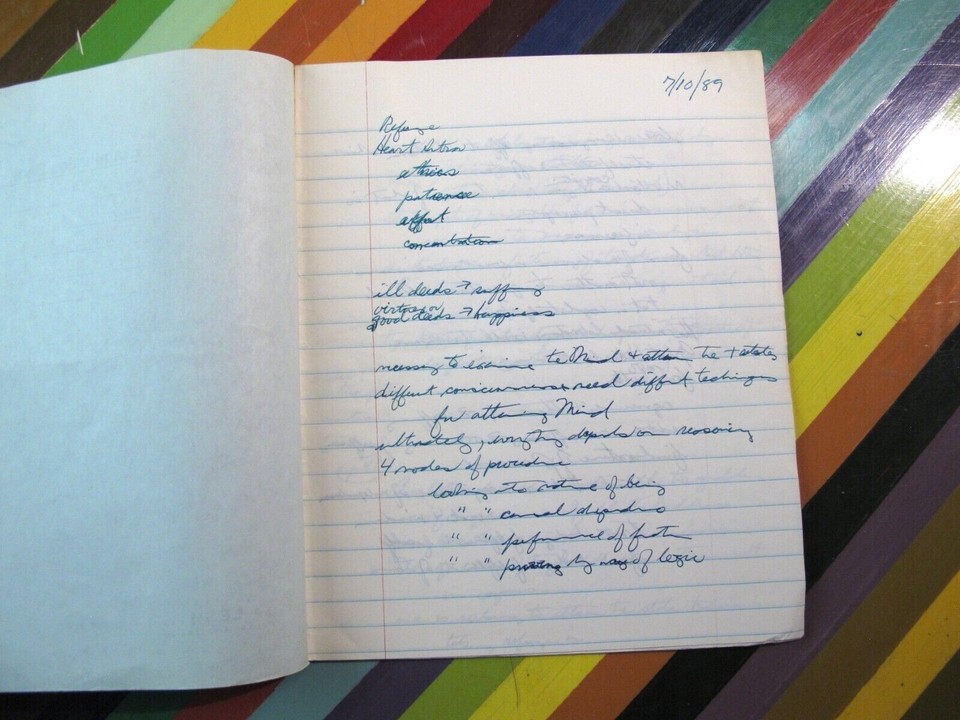 7/10/89
Refuge
Heart Sutra
ethics
patience
effort
concentration
ill deeds → suffering
virtuous or
good deeds → happiness
necessary to examine the Mind + attain the + states
different consciousnesses need different techniques
for attaining Mind
ultimately, everything depends on reasoning
4 modes of procedure
looking into nature of being
" " causal dependence
" " performance of function
" " proving by way of logic